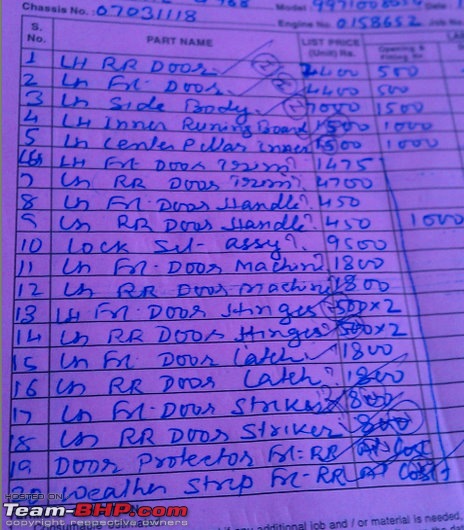 Chassis No.: 07031118 Model 9971008
Engine No. 0158652 Job No
S. No. PART NAME LIST PRICE (Unit) Rs. Opening & Fitting Rs. LA
1 LH RR Door 4400 500
2 Ln Frt. Door 4400 500
3 Ln Side Body 7000 1500
4 LH Inner Runing Board 1500 1000
5 Ln Center Pillar inner 1500 1000
6 LH Frt Door Trim? 1475
7 Ln RR Door Trim? 4700
8 Ln Frt Door Handle? 450
9 Ln RR Door Handle? 450 1000
10 Lock Set assy? 9500
11 Ln Frt-Door Machine? 1800
12 Ln RR Door Machine? 1800
13 LH Frt-Door Hinges 500x2
14 Ln RR Door Hinges 500x2
15 Ln Frt Door Catch 1800
16 Ln RR Door Catch? 1800
17 Ln Frt-Door Striker 800
18 Ln RR Door Striker 800
19 Door Protector Frt-RR AT Cost
20 Weather Strip Frt-RR AT Cost
HOSTED ON
Team-BHP.com
copyright respective owners
if any additional job and / or material is needed.